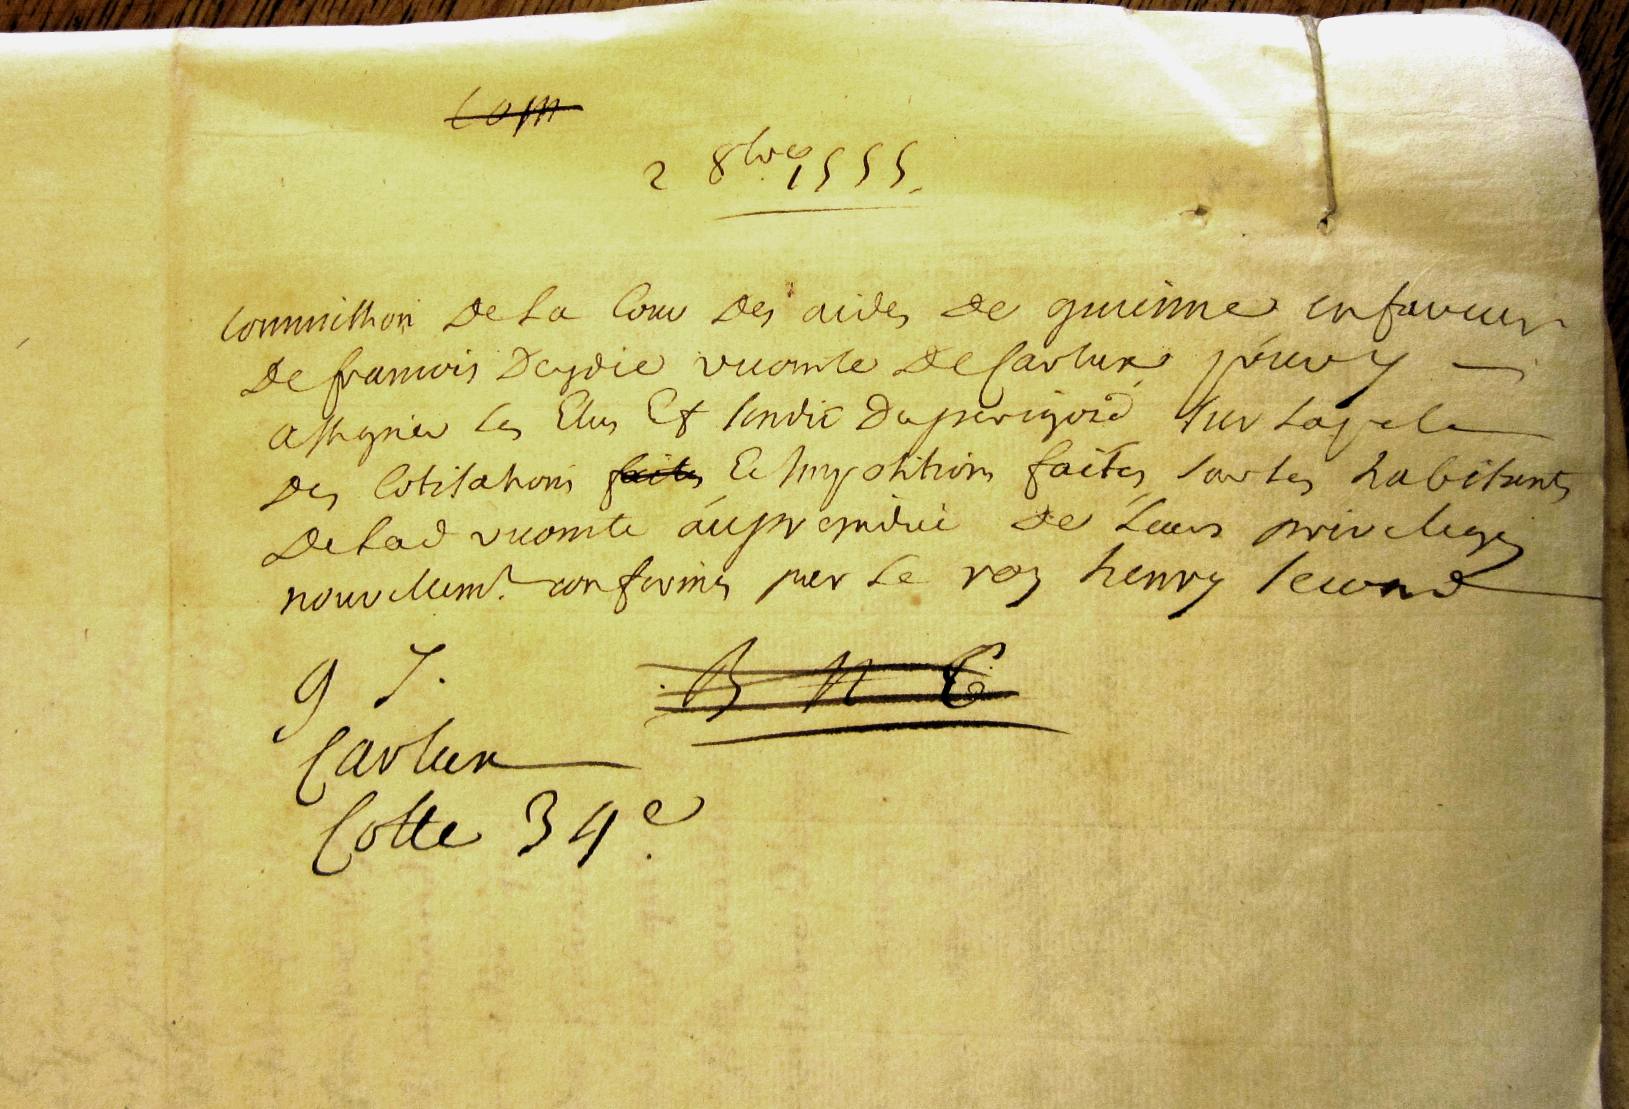 Com
2 8bre 1555.
Commission de la Cour des aides de guienne en faveur
de francois Daydie vicomte de Carlux pour y
assigner les Elus Et sindic du perigord sur lapel
des Cotisations faites Et Impositions faites sur les habitants
de lad vicomte au prejudice de leurs privileges
nouvellemt. confirmés par le roy henry second
B n E
Carlux
Cotte 34e.